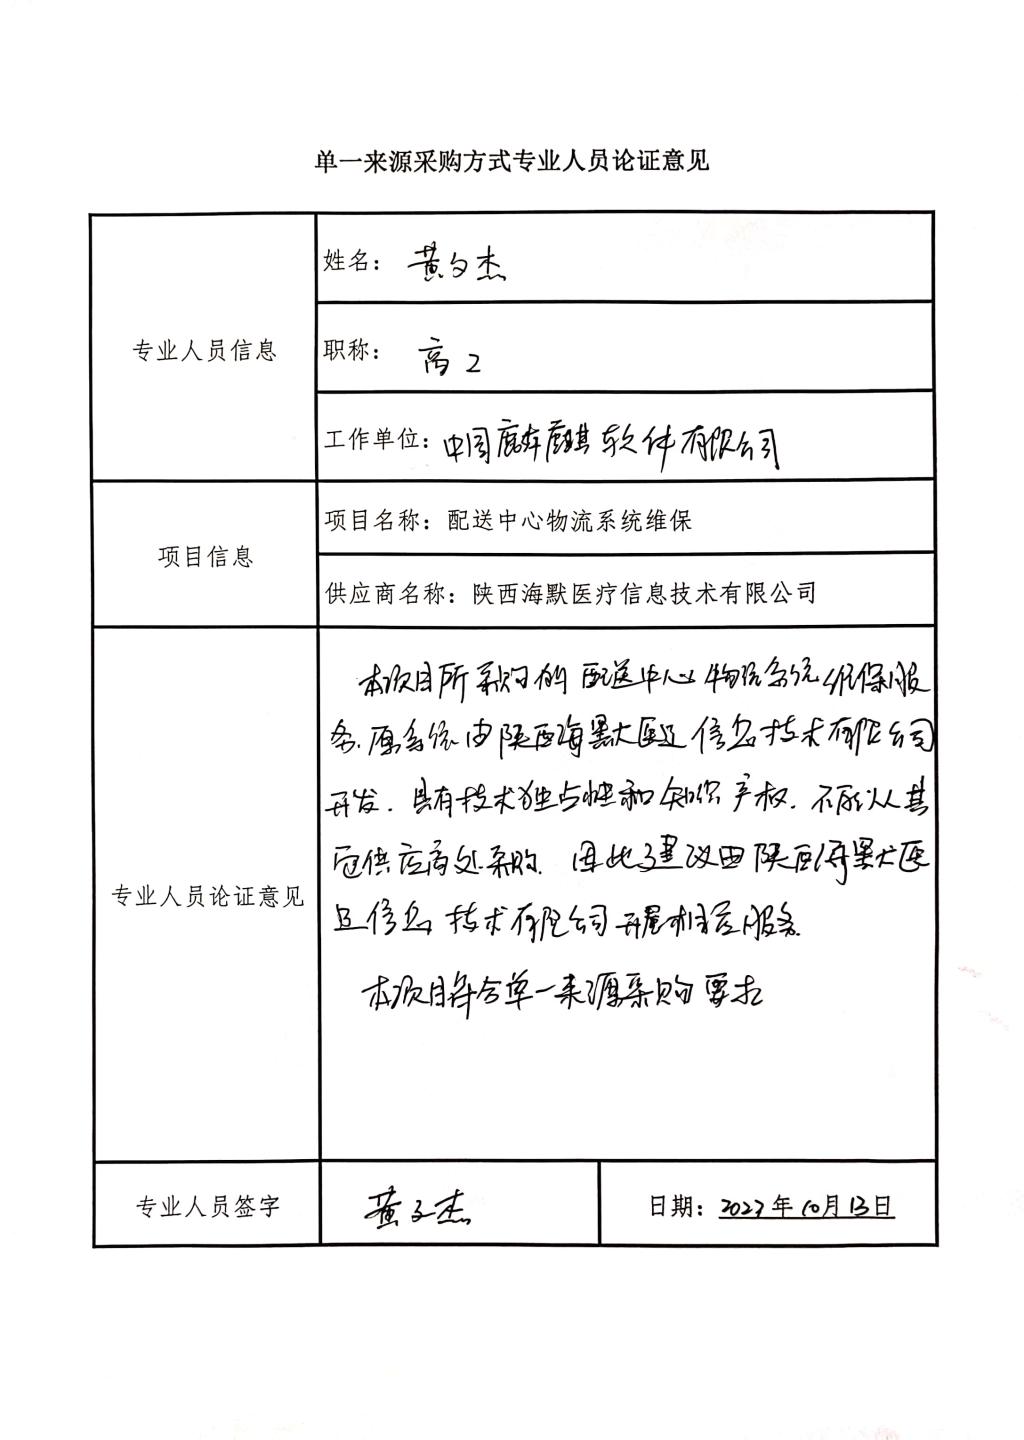 单一来源采购方式专业人员论证意见
专业人员信息
姓名：黄文杰
职称：高工
工作单位：中国麒麟软件有限公司
项目信息
项目名称：配送中心物流系统维保
供应商名称：陕西海默医疗信息技术有限公司
专业人员论证意见
本项目所采购的配送中心物流系统维保服
务.原系统由陕西海默医疗信息技术有限公司
开发.具有技术独占性和知识产权.不能从其
它供应商处采购.因此建议由陕西海默医
疗信息技术有限公司开展相应服务.
本项目符合单一来源采购要求
专业人员签字
黄文杰
日期：2023年10月13日